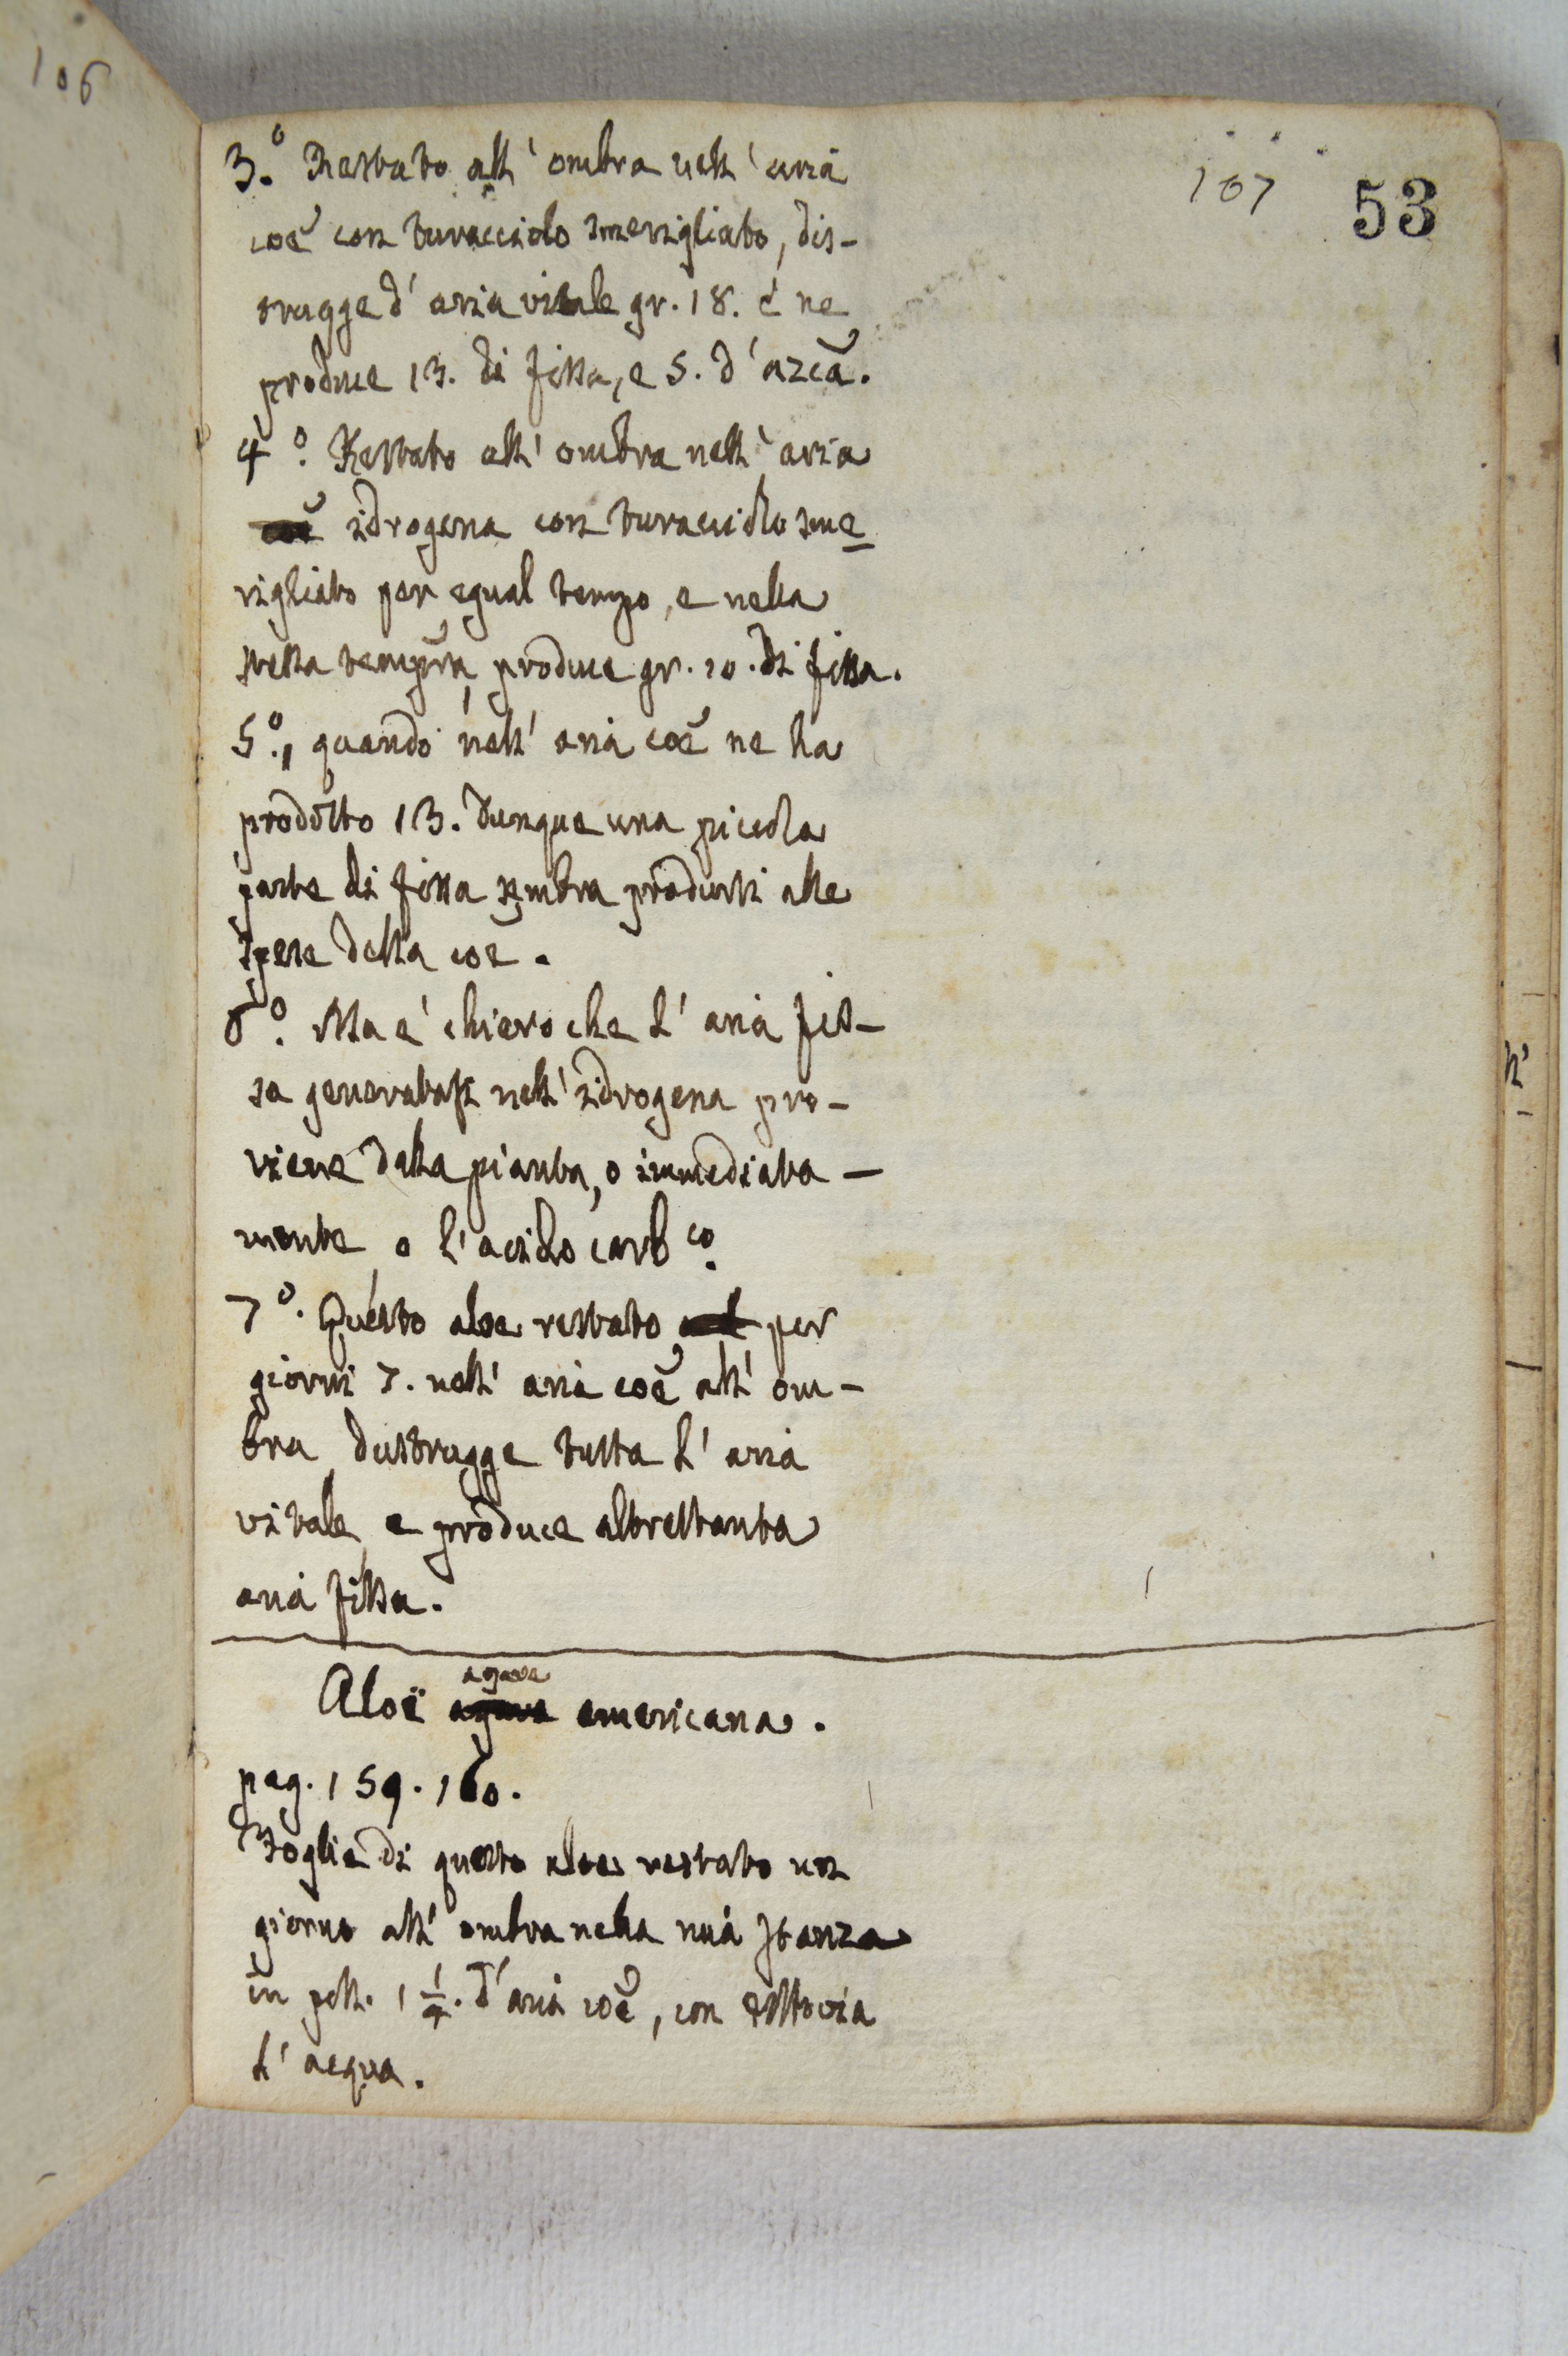 106
107 53
3.º Restato all'ombra nell'aria
coẽ con turacciolo smerigliato, dis-
trugge d'aria vitale gr. 18. e ne
produce 13. di fissa, e 5. d'azcã.
4.º Restato all'ombra nell'aria
coẽ idrogena con turacciolo sme
rigliato per egual tempo, e nella
stessa tempr̃a produce gr. 10. di fissa.
5.º, quando nell'aria coẽ ne ha
prodotto 13. Dunque una piccola
parte di fissa sembra prodursi alle
spese della coẽ.
6.º Ma e' chiaro che l'aria fis-
sa generatasi nell'idrogena pro-
viene dalla pianta, o immediata-
mente o l'acido carb.co
7.º Questo aloe restato per
giorni 7. nell'aria coẽ all'om-
bra dustrugge tutta l'aria
vitale e produce altrettanta
aria fissa.
agave
Aloè agava americana.
pag. 159. 160.
Foglie di questo aloe restato un
giorno all'ombra nella mia stanza
in poll. 1 1/4. d'aria coẽ, con
d'acqua.